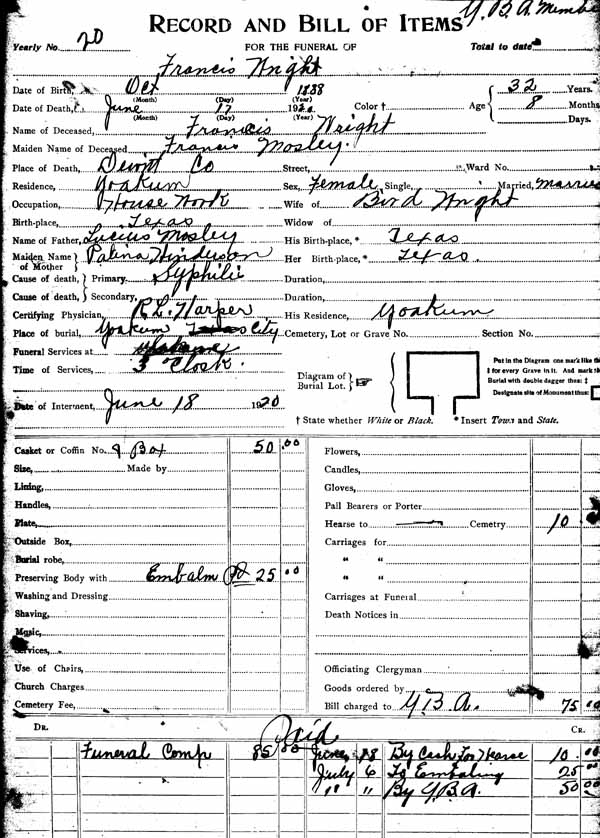 Y.B.A. Membe
RECORD AND BILL OF ITEMS
Yearly No. 20 FOR THE FUNERAL OF Total to date
Francis Wright
Date of Birth, Oct 1888 32 Years.
(Month) (Day) (Year)
Date of Death, June 17 1920 Color † Age 8 Months
(Month) (Day) (Year) Days.
Name of Deceased, Francis Wright
Maiden Name of Deceased Francis Mosley.
Place of Death, Dewitt Co Street, Ward No.
Residence, Yoakum Sex, Female, Single, Married, Married
Occupation, House Work Wife of Bird Wright
Birth-place, Texas Widow of
Name of Father, Lucius Mosley His Birth-place, * Texas
Maiden Name of Mother Palina Hinderson Her Birth-place, * Texas
Cause of death, Primary, Syphilis Duration,
Cause of death, Secondary, Duration,
Certifying Physician, R.L. Harper His Residence, Yoakum
Place of burial, Yoakum city Cemetery, Lot or Grave No. Section No.
Funeral Services at
Time of Services, 3 O'Clock.
Diagram of Burial Lot.
Put in the Diagram one mark like th
‡ for every Grave in it. And mark th
Burial with double dagger thus: ‡
Designate site of Monument thus:
Date of Interment, June 18 1920
† State whether White or Black. * Insert Town and State.
Casket or Coffin No. & Box 50.00 Flowers,
Size, Made by Candles,
Lining, Gloves,
Handles, Pall Bearers or Porter
Plate, Hearse to Cemetry 10
Outside Box, Carriages for
Burial robe, " "
Preserving Body with Embalm Pd 25.00 " "
Washing and Dressing Carriages at Funeral
Shaving, Death Notices in
Music,
Services,
Use of Chairs, Officiating Clergyman
Church Charges Goods ordered by
Cemetery Fee, Bill charged to Y.B.A. 75.00
DR. Paid CR.
Funeral Comp 85 00 June 18 By Cash For Hearse 10.00
July 6 To Embaling 25 00
" " By Y.B.A. 50 00